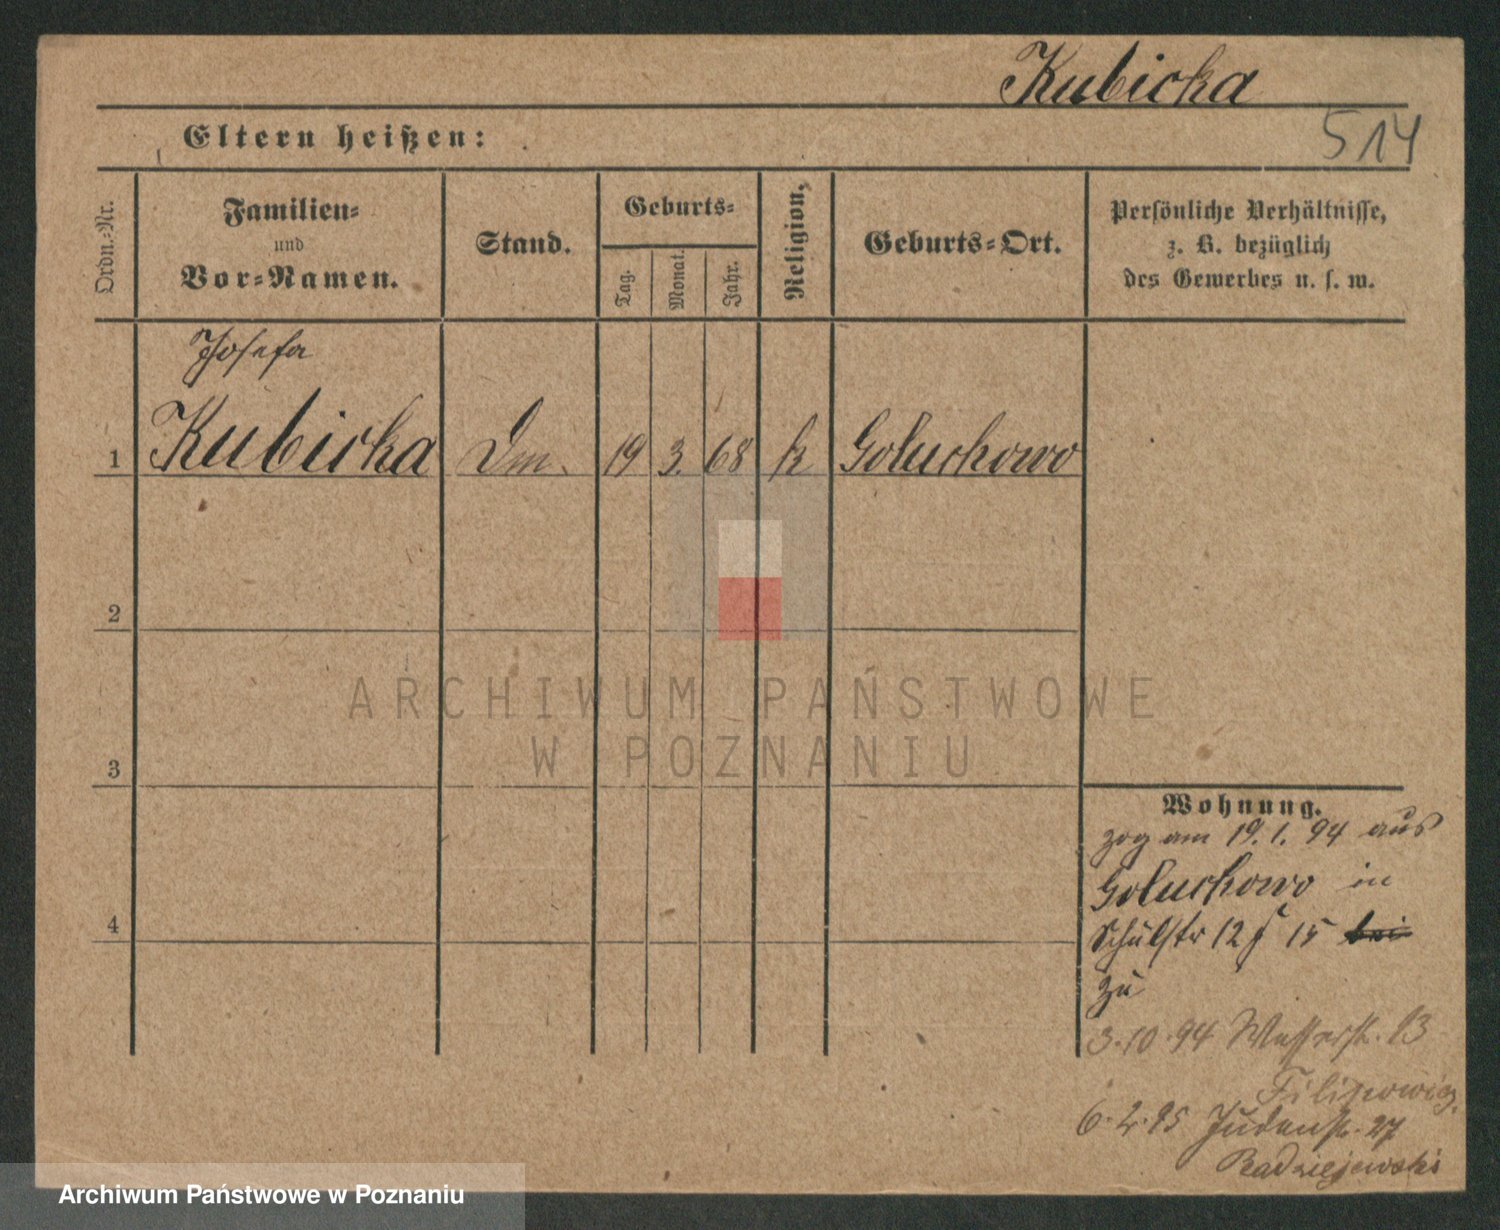 Kubicka
Eltern heißen:
514
Ordn.-Nr.
Familien-
und
Vor-Namen.
Stand.
Geburts-
Tag.
Monat.
Jahr.
Religion,
Geburts-Ort.
Persönliche Verhältnisse,
z. B. bezüglich
des Gewerbes u. s. w.
Josefa
1 Kubicka Dm. 19 3. 68 k Goluchowo
2
3
4
ARCHIWUM PAŃSTWOWE
W POZNANIU
Wohnung.
zog am 19. 1. 94 aus
Goluchowo in
Schulstr 12 15
zu
3.10.94 Wasserstr. 13
Filipowicz
6.2.95 Judenstr. 27
Radziejewski
Archiwum Państwowe w Poznaniu